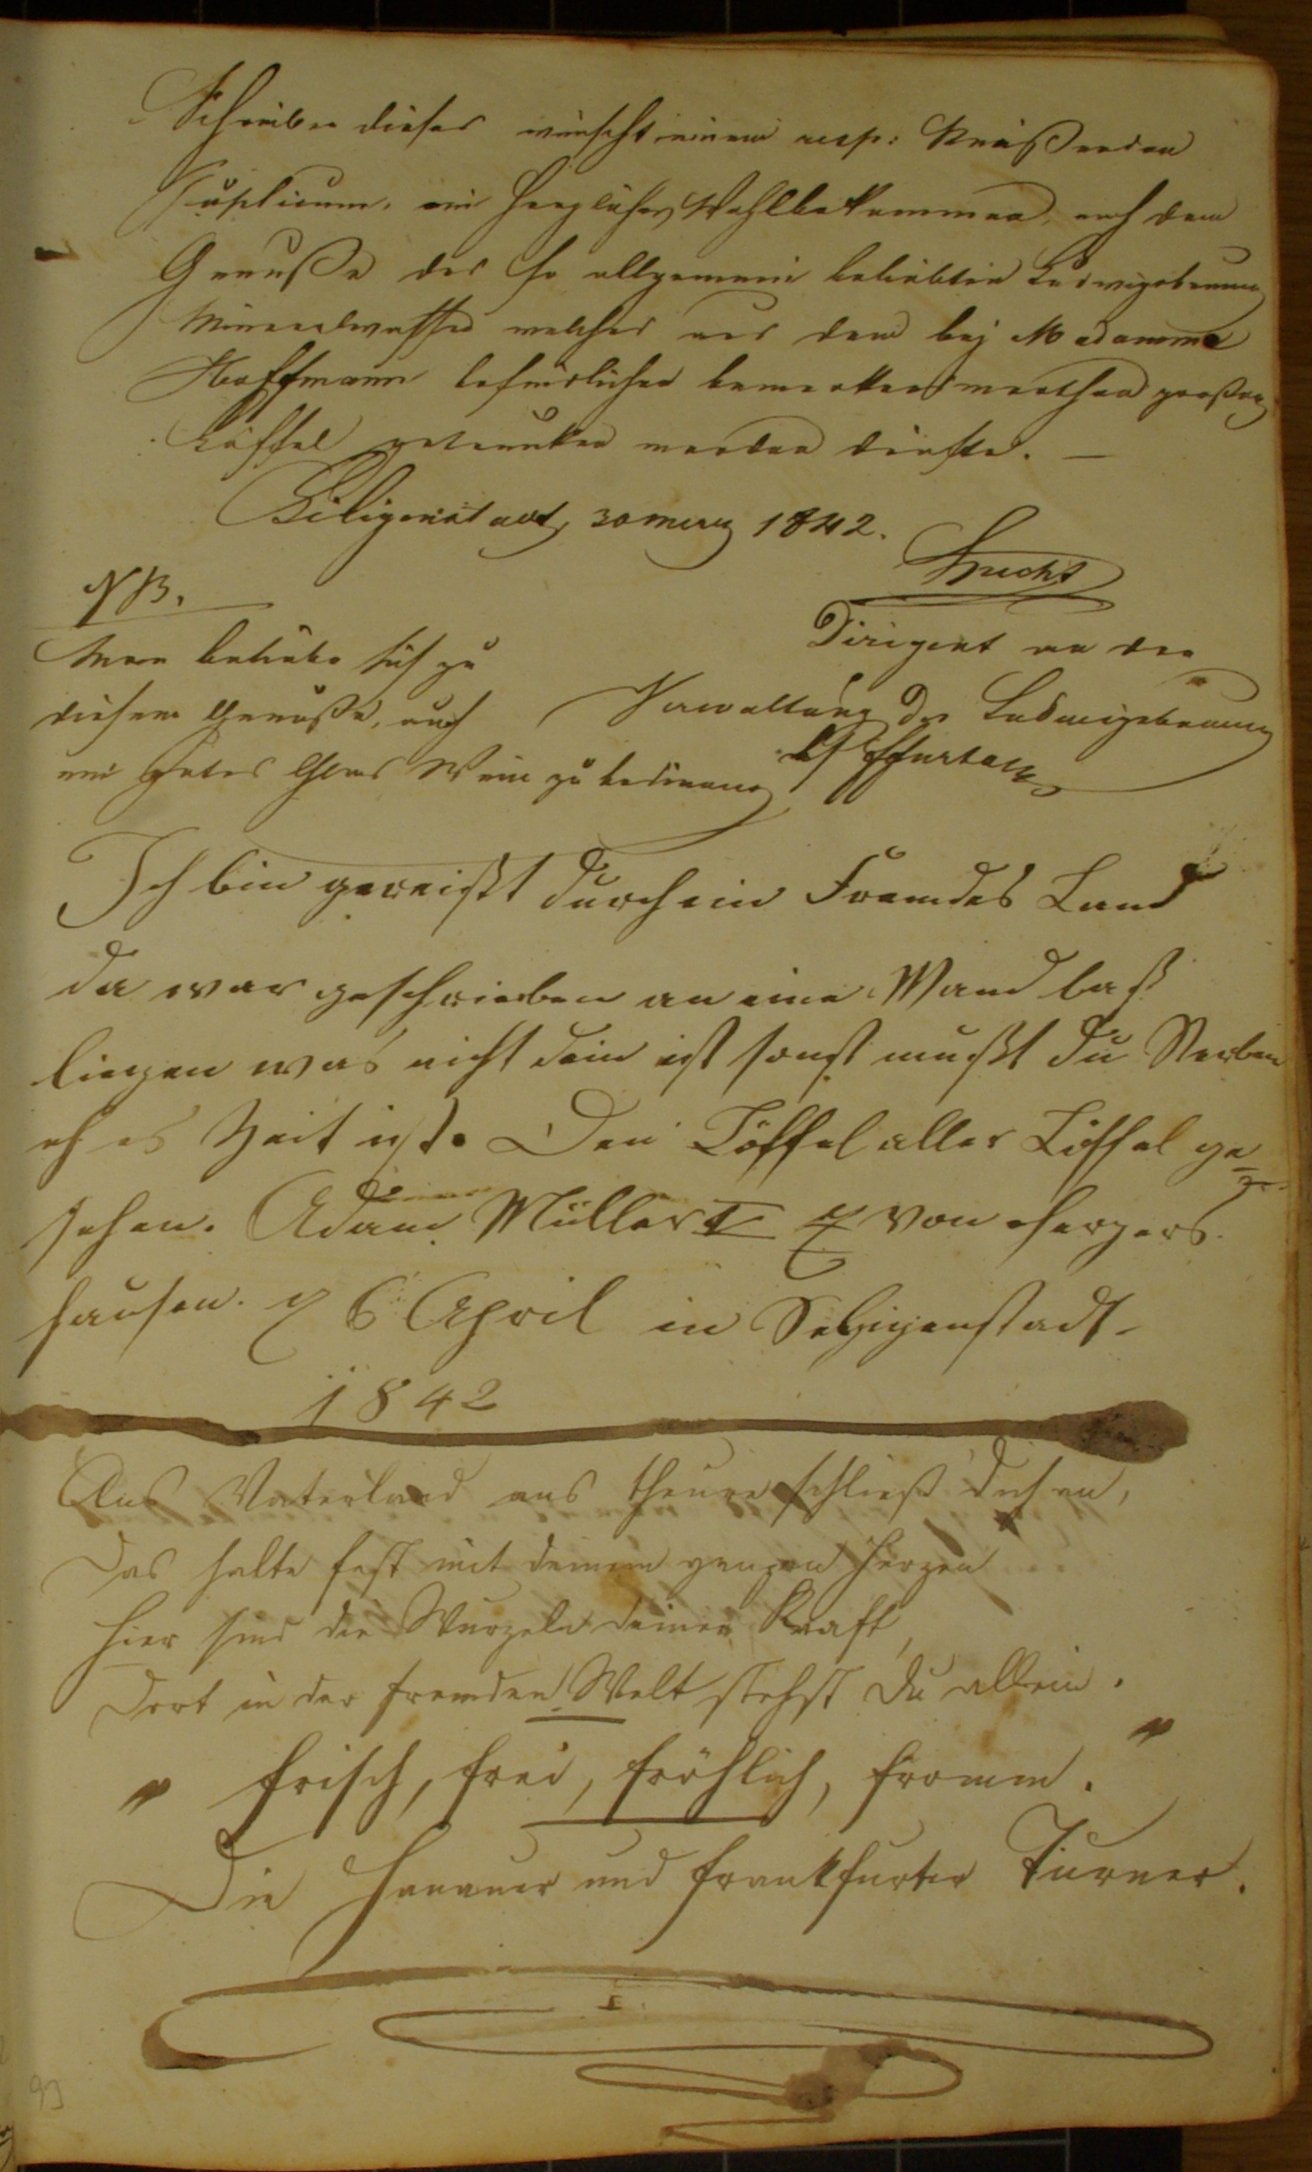 Schreiber dieses wünscht einem resp: Reißenden
Puplicum, ein herzliches Wohlbekommen, auf dem
Genuße des so allgemein beliebten Ludwigsbrunn
Mineralwasser welches aus dem bej Madamme
Hoffmann befindlichen bemerkenswerthen großen
Löffel getrunken werden dürfte. —
Seligenstadt, 30 merz 1842.
Hucht
NB.
Dirigent an der
Man beliebe sich zu
diesem Genuße, auch
Verwaltung des Ludwigsbrunn
ein gutes Glas Wein zu bedienen
Ich bin gereißt durch ein Fremdes Land
da war geschrieben an eine Wand laß
liegen was nicht dein ist sonst mußt du Sterben
eh es Zeit ist. Den Löffel aller Löffel ge=
sehen. Adam Müller von Hergers
hausen. 6 April in Selzigenstadt.
1842
Ans Vaterland ans theure schließ dich an,
Das halte fest mit deinem ganzen Herzen
Hier sind die Wurzeln deiner Kraft,
Dort in der fremden Welt stehst du allein.
" Frisch, frei, fröhlich, fromm. "
Die Hanauer und Frankfurter Turner.
93